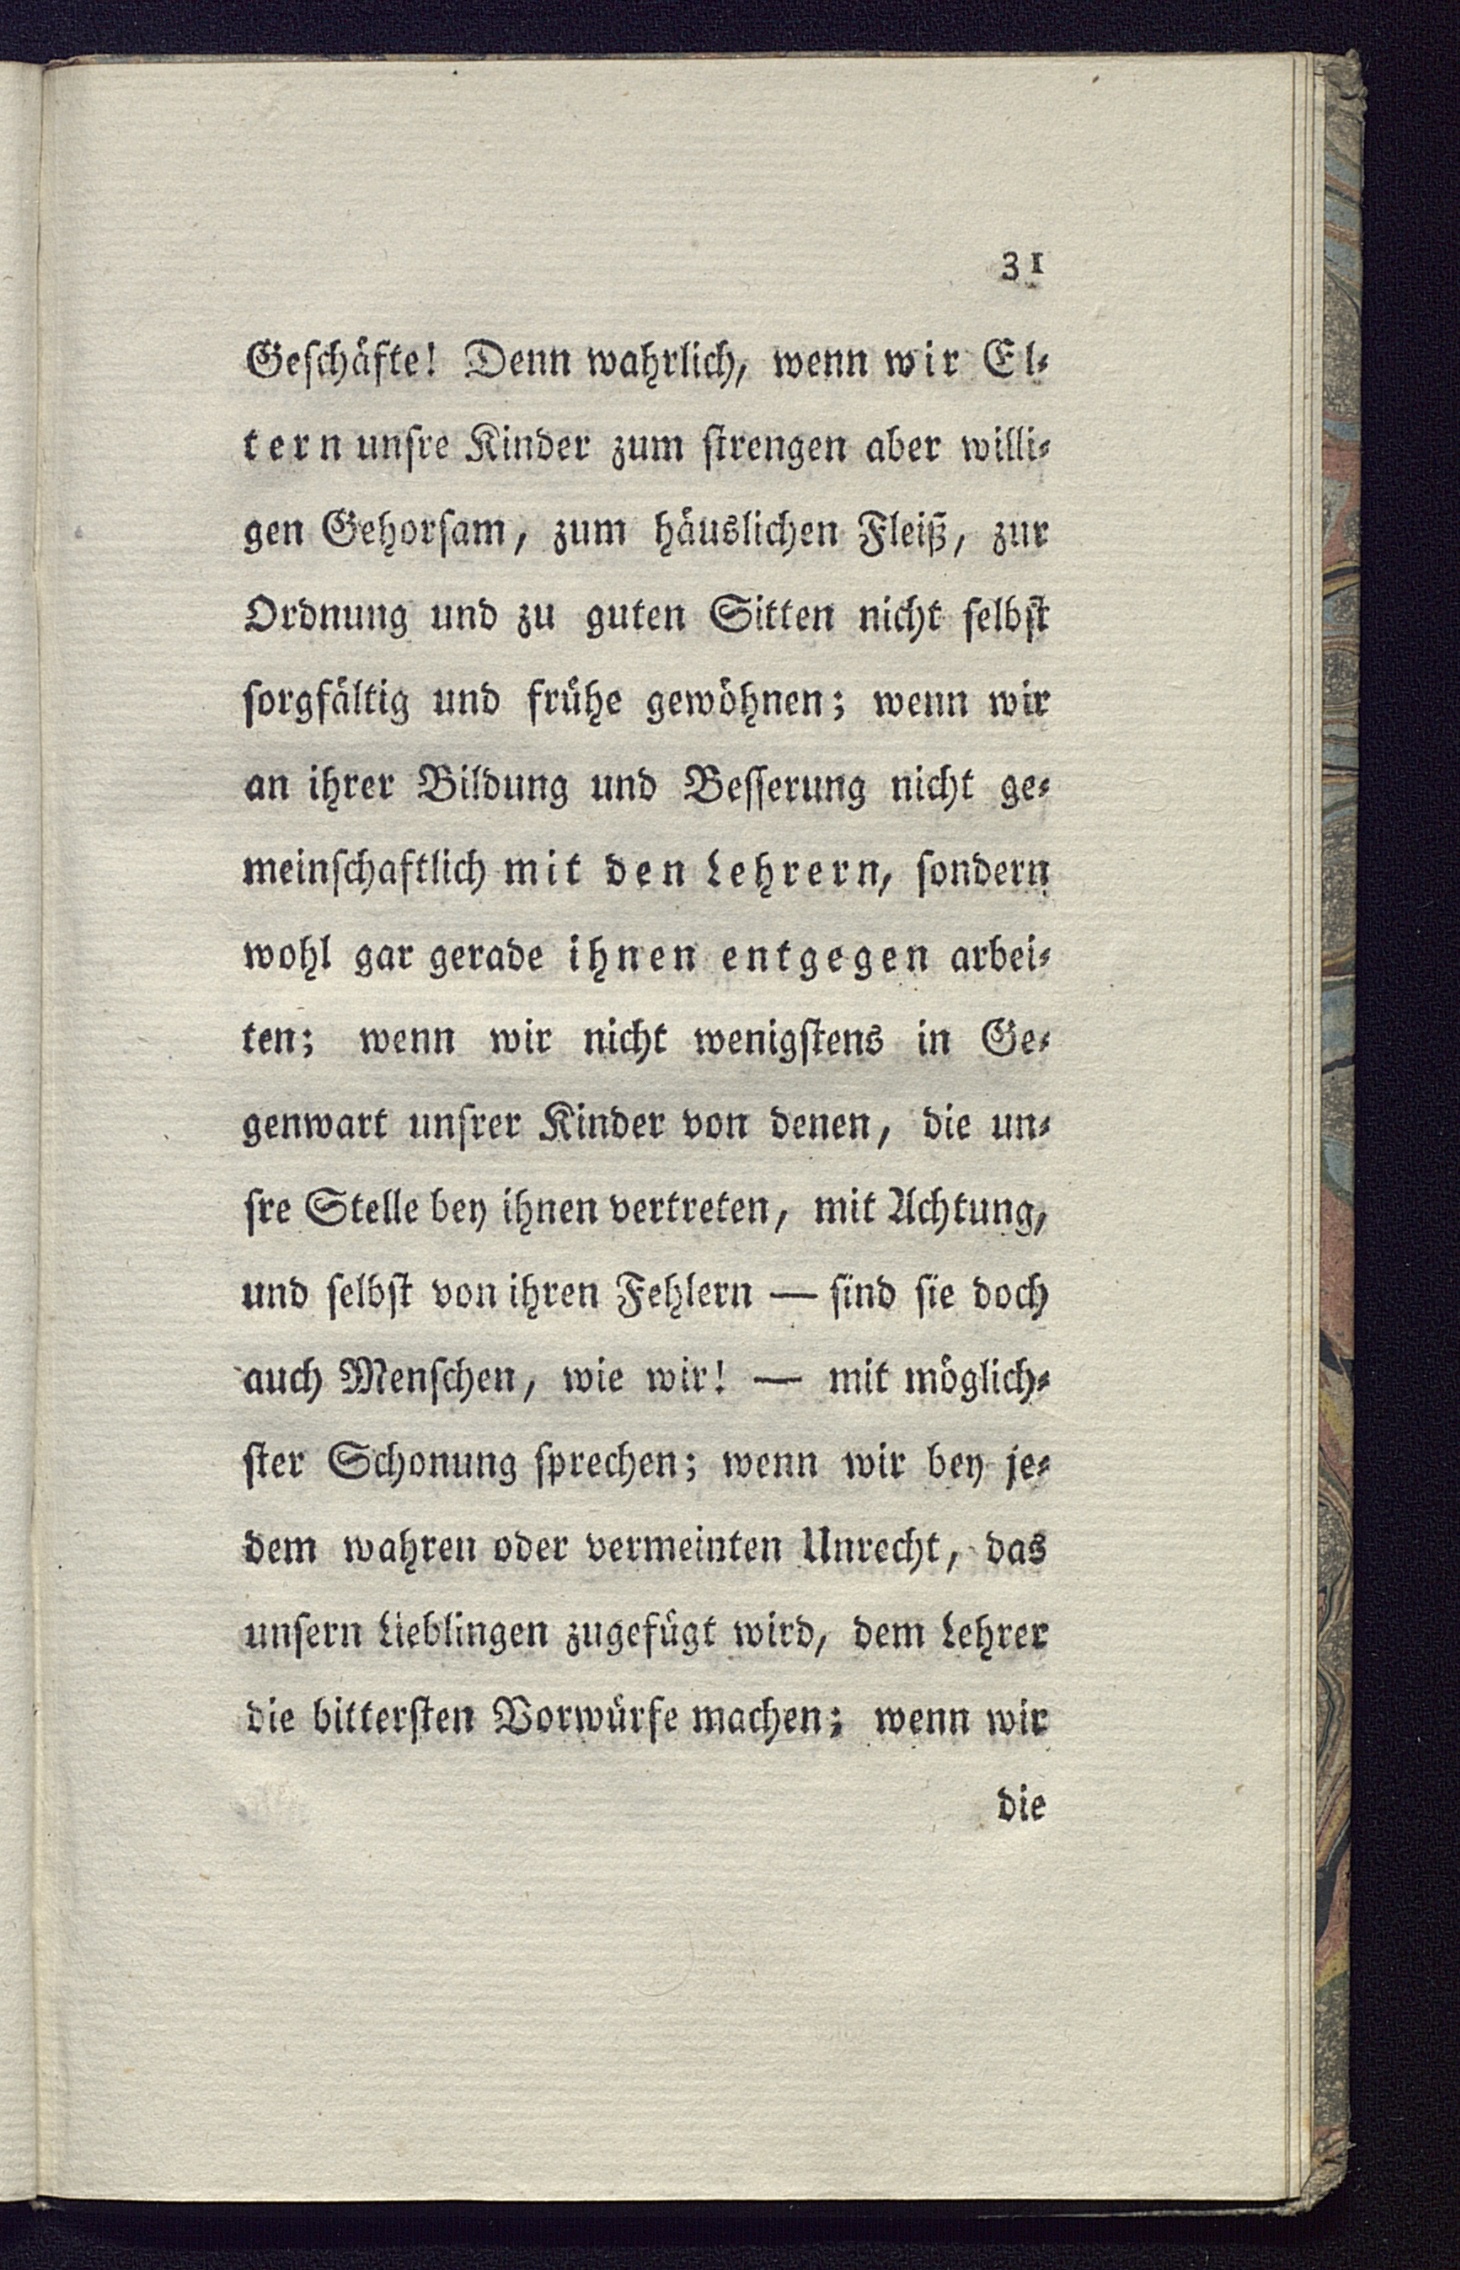 31
Geschäfte! Denn wahrlich, wenn wir El-
tern unsre Kinder zum strengen aber willi-
gen Gehorsam, zum häuslichen Fleiß, zur
Ordnung und zu guten Sitten nicht selbst
sorgfältig und frühe gewöhnen; wenn wir
an ihrer Bildung und Besserung nicht ge-
meinschaftlich mit den Lehrern, sondern
wohl gar gerade ihnen entgegen arbei-
ten; wenn wir nicht wenigstens in Ge-
genwart unsrer Kinder von denen, die un-
sre Stelle bey ihnen vertreten, mit Achtung,
und selbst von ihren Fehlern — sind sie doch
auch Menschen, wie wir! — mit möglich-
ster Schonung sprechen; wenn wir bey je-
dem wahren oder vermeinten Unrecht, das
unsern Lieblingen zugefügt wird, dem Lehrer
die bittersten Vorwürfe machen; wenn wir
die